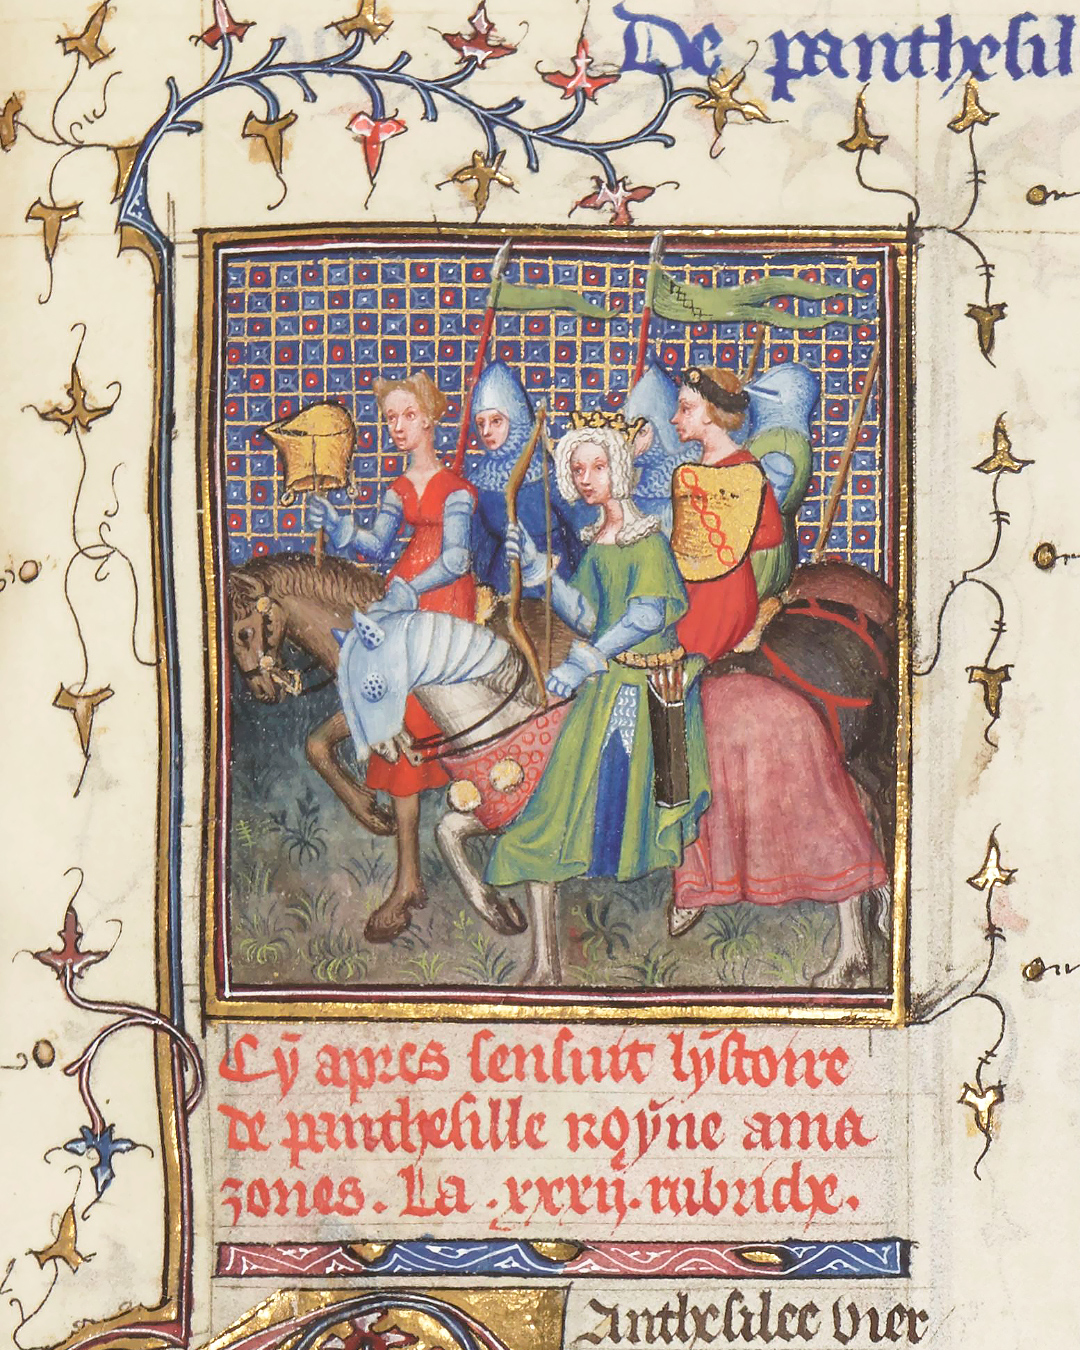 De panthesil
Cÿ apres sensuit lÿstoire
de panthesille roÿne ama
zones. La .xxxij. rubriche.
Anthesilee vier